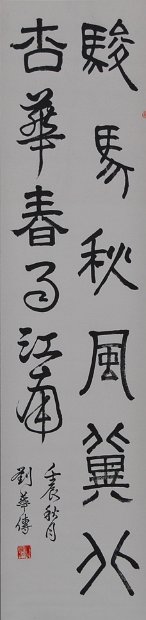 駿馬秋風冀北
杏華春雨江南
壬辰秋月
劉華傳